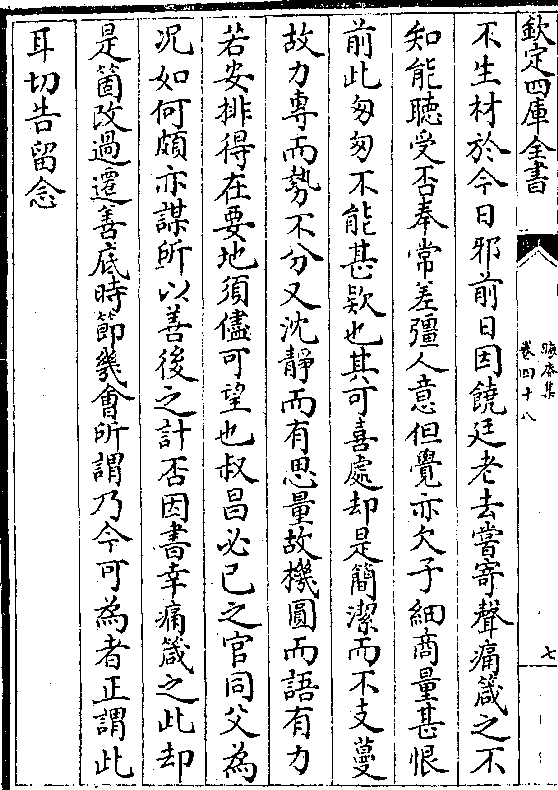 欽定四庫全書
晦庵集
卷四十八
七
不生材於今日邪前日因饒廷老去嘗寄聲痛箴之不
知能聽受否奉常差彊人意但覺亦欠子細商量甚恨
前此匆匆不能甚欵也其可喜處却是簡潔而不支蔓
故力專而勢不分又沈靜而有思量故機圓而語有力
若安排得在要地須儘可望也叔昌必已之官同父為
况如何頗亦謀所以善後之計否因書幸痛箴之此却
是箇改過遷善底時節幾會所謂乃今可為者正謂此
耳切告留念